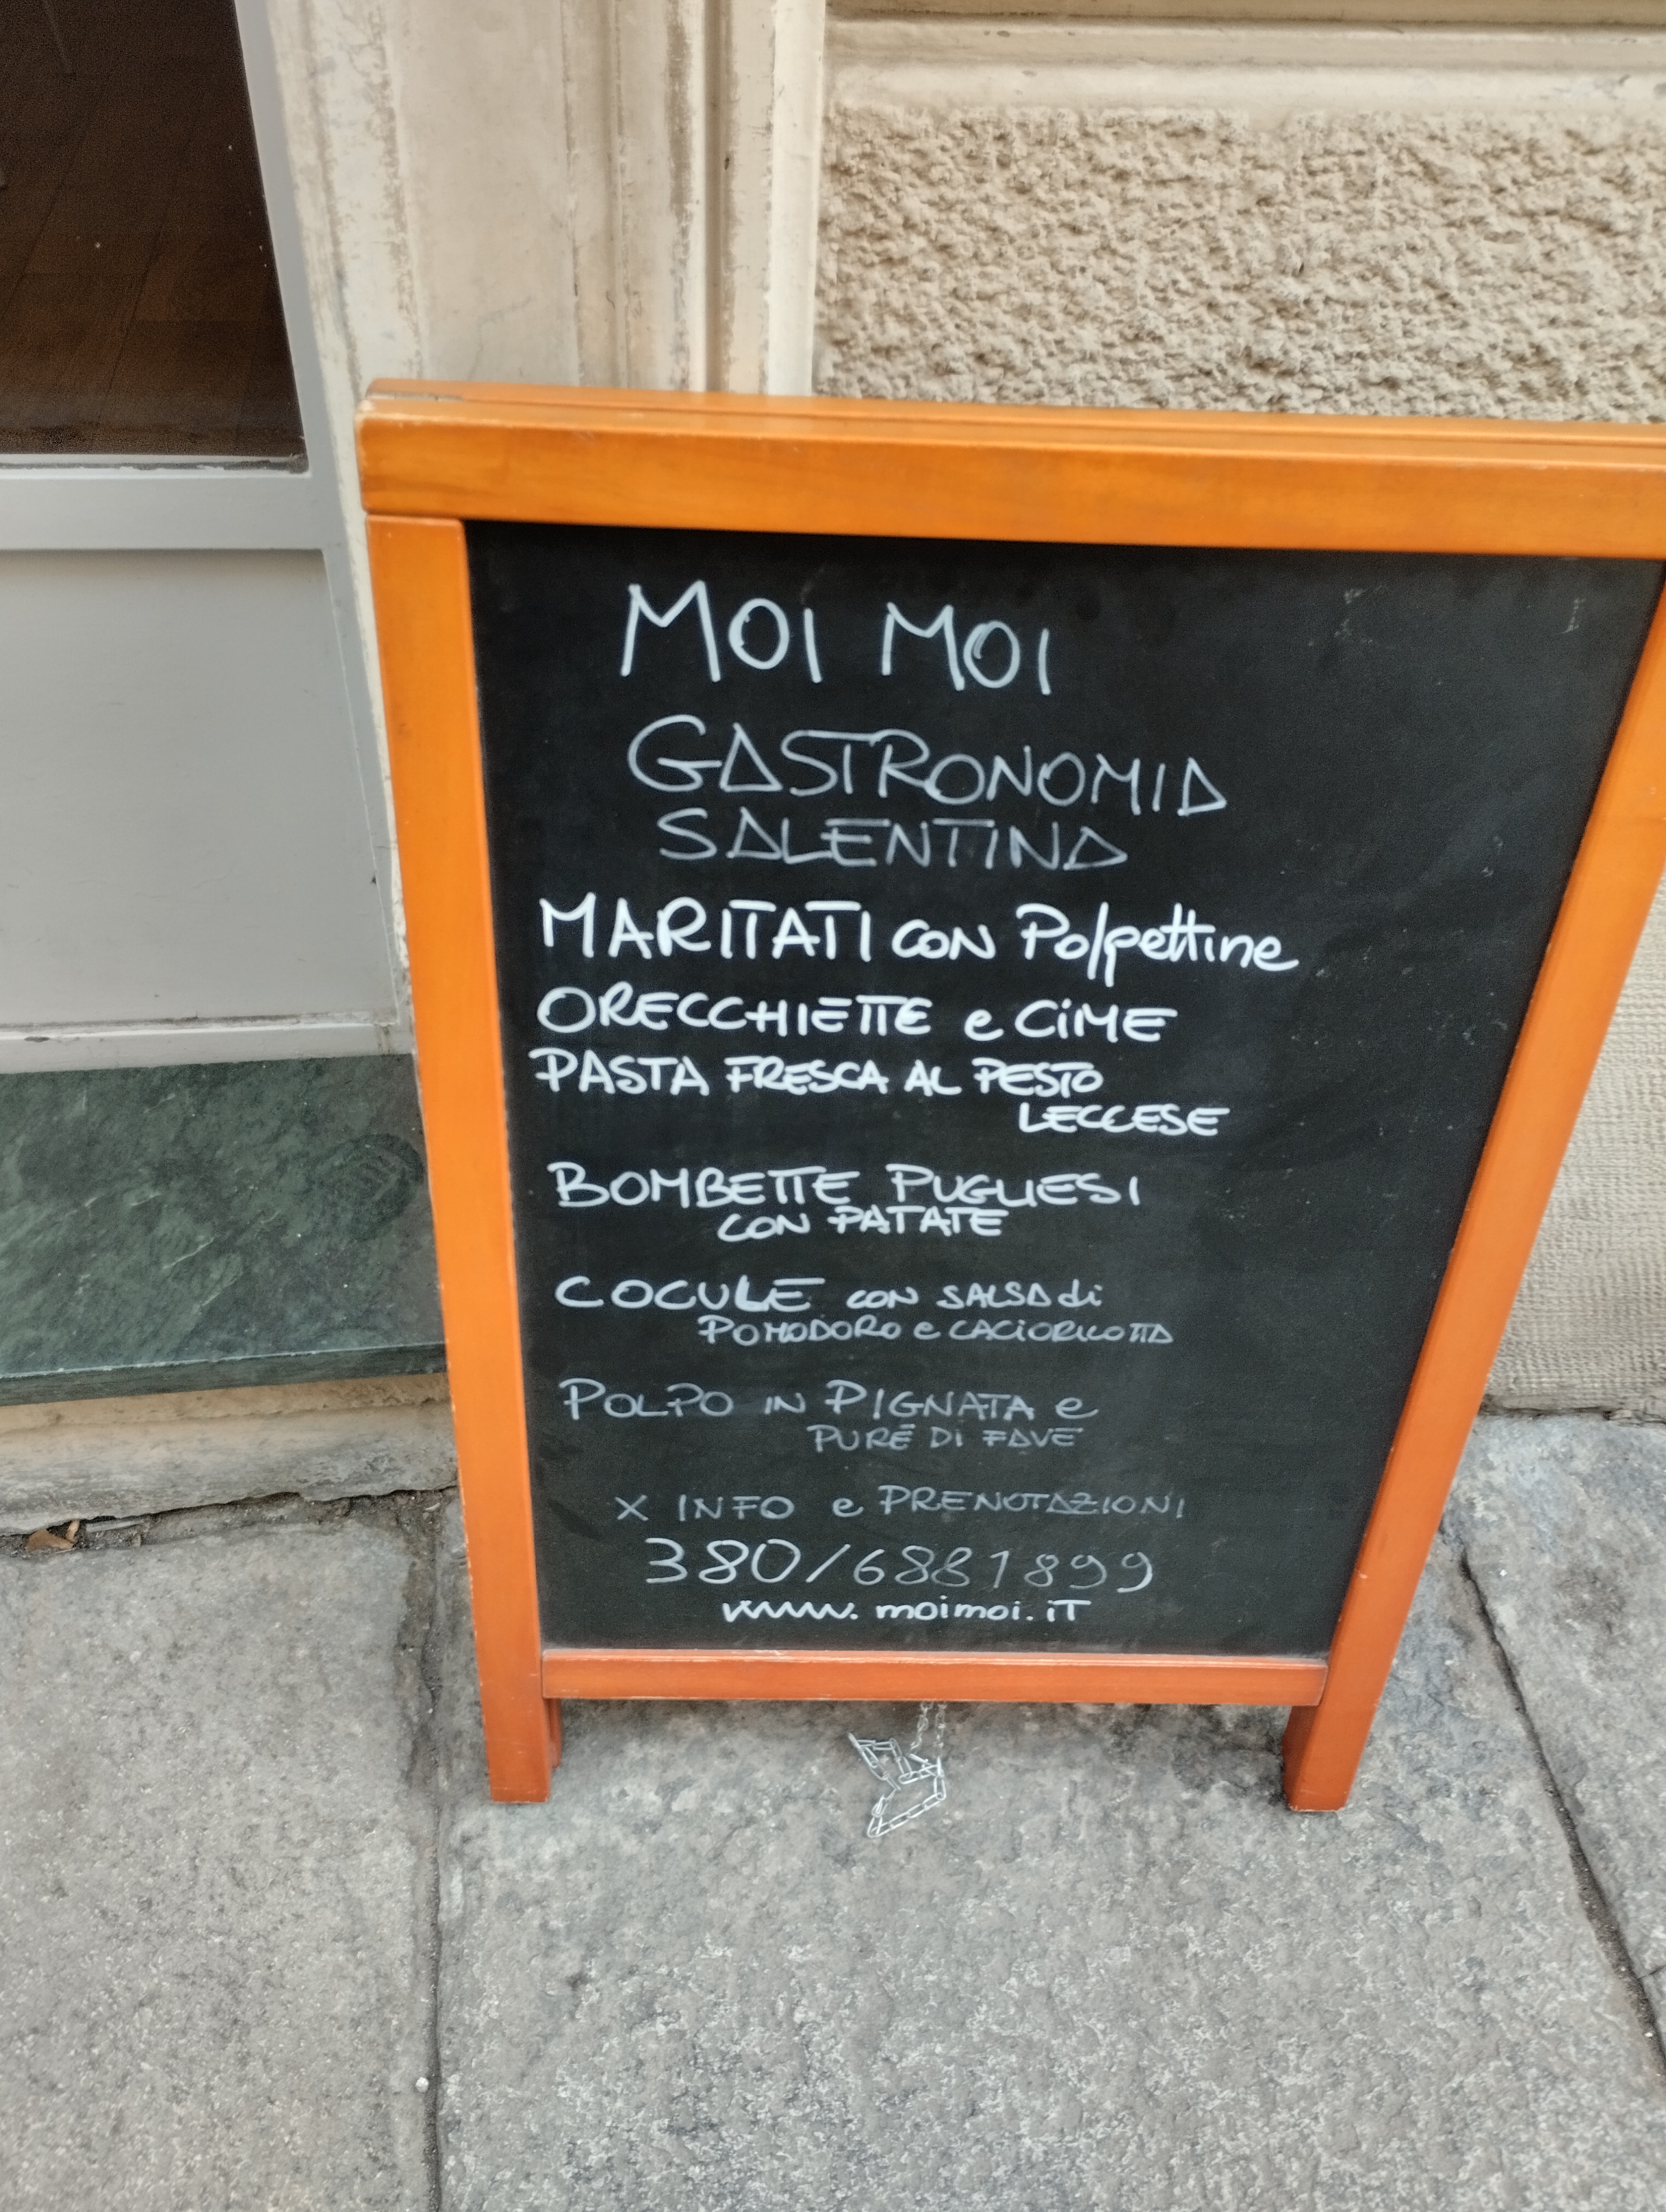 MOI MOI
GASTRONOMIA
SALENTINA
MARITATI CON Polpettine
ORECCHIETTE e CiME
PASTA FRESCA AL PESTO
LECCESE
BOMBETTE PUGLIESI
CON PATATE
COCULE CON SALSA di
POMODORO e CACIORICOTTA
POLPO IN PIGNATA e
PURÈ DI FAVE
X INFO e PRENOTAZIONI
380/6881899
www.moimoi.iT